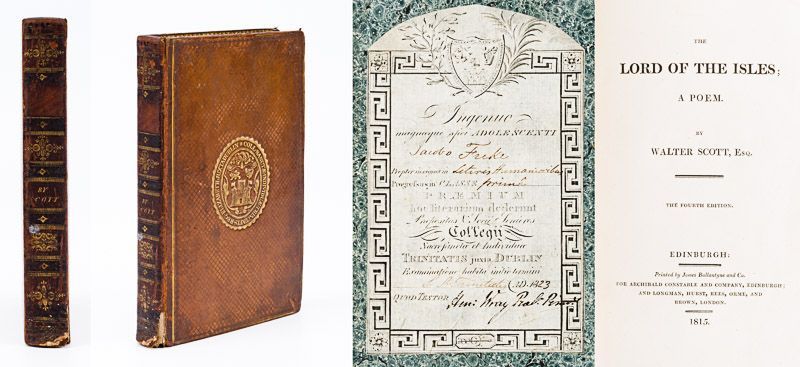 BY
SCOTT
BY
SCOTT
Ingenuo
magnæque spei ADOLESCENTI
Jacobo Freke
Propter insignes in
Progressus in CLASSE primâ
PRÆMIUM
hoc literarium dederunt
Præpositus & Socii Seniores
Collegii
Sacrosanctæ et Individuæ
TRINITATIS juxta DUBLIN
Examinatione habita initio termini
AD 1823
QUOD TESTOR
THE
LORD OF THE ISLES;
A POEM.
BY
WALTER SCOTT, Esq.
THE FOURTH EDITION.
EDINBURGH:
Printed by James Ballantyne and Co.
FOR ARCHIBALD CONSTABLE AND COMPANY, EDINBURGH;
AND LONGMAN, HURST, REES, ORME, AND
BROWN, LONDON.
1815.